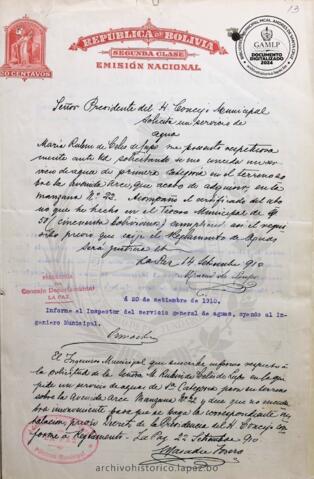 13
REPUBLICA DE BOLIVIA
SEGUNDA CLASE
EMISIÓN NACIONAL
20 CENTAVOS
GAMLP
DOCUMENTO
DIGITALIZADO
2024
Señor Presidente del H. Concejo Municipal
Solicita un servicio de
agua
María Rubin de Celis de Lupo me presento respetuosa
mente ante Ud. solicitando se me conceda un ser
vicio de agua de primera categoria en el terreno so
bre la avenida Arce, que acabo de adquirir, en la
manzana N.° 23. Acompaño el certificado del abo
no que he hecho en el Tesoro Municipal de
50/ (cincuenta bolivianos) cumpliendo así el requi
sito previo que exije el Reglamento de Aguas
Será justicia
La Paz 14 Setiembre 910
PRESIDENCIA
Concejo Departamental
LA PAZ
á 20 de setiembre de 1910.
Informe el Inspector del servicio general de aguas, oyendo al In-
geniero Municipal.
El Ingeniero Municipal que suscribe informa respecto á
la solicitud de la Señora Rubin de Celis de Lupo en la que
pide un servicio de agua de 1a Categoria para un terreno
sobre la Avenida Arce Manzana N° 22 y dice que no encuen
tra inconveniente para que se haga la correspondiente ins
talacion, previo Decreto de la Presidencia del H. Concejo con
forme á Reglamento. - La Paz 22 Setiembre 910
archivohistorico.lapaz.bo